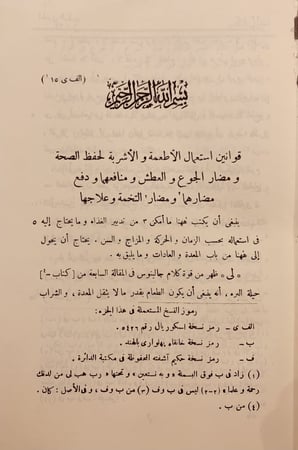 ( الف ى ١٥ )
بسم الله الرحمن الرحيم (١)
قوانين استعمال الأطعمة و الأشربة لحفظ الصحة
و مضار الجوع و العطش و منافعهما و دفع
مضارهما ٢و مضار٢ التخمة وعلاجها
ينبغى أن يكتب هٰهنا ما أمكن ٣ من تدبير الغذاء و ما يحتاج إليه ٥
فى استعماله بحسب الزمان و الحركة و المزاج و السن. يحتاج أن يحول
إلى هٰهنا من باب المعدة و العادات و ما يليق به .
» لى « ظهر من قوة كلام جالينوس فى المقالة السابعة من [ كتاب -٤]
حيلة البرء، أنه ينبغى أن يكون الطعام بقدر ما لا يثقل المعدة، و الشراب
رموز النسخ المستعملة فى هذا الجزء:
الف ى - رمز نسخة اسكوريال رقم ٨٢٦.
ب - رمز نسخة خانقاه پهلوارى بالهند .
ف - رمز نسخة حكيم آشفته المحفوظة فى مكتبة الدائرة .
(١) زاد فى ب فوق البسملة » و به نستعين « و تحتها » رب هب لى من لدنك
رحمة و علما « (٢-٢) ليس فى ب و ف (٣) من ب و ف، و فى الأصل : كان .
(٤) من ب .